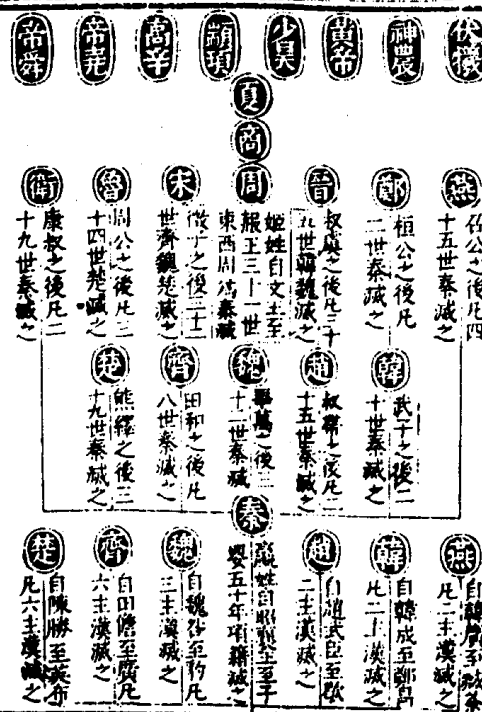 伏犧
神農
黄帝
少昊
顓頊
高辛
帝堯
帝舜
夏
商
周
姬姓自文王至
赧王三十一世
東西周為秦滅
燕
召公之後凡四
十五世秦滅之
鄭
桓公之後凡
二世秦滅之
晉
叔虞之後凡三十
五世韓魏滅之
宋
微子之後三十二
世齊魏楚滅之
魯
周公之後凡三
十四世楚滅之
衛
康叔之後凡二
十九世秦滅之
韓
武子之後二
十世秦滅之
趙
叔帶之後凡二
十五世秦滅之
魏
畢萬之後二
十一世秦滅
齊
田和之後凡
八世秦滅之
楚
熊繹之後二
十九世秦滅之
秦
嬴姓自昭襄王至子
嬰五十年項籍滅之
燕
自韓廣至臧荼
凡二主漢滅之
韓
自韓成至鄭昌
凡二主漢滅之
趙
自趙武臣至歇
二主漢滅之
魏
自魏咎至豹凡
三主漢滅之
齊
自田儋至廣凡
六主漢滅之
楚
自陳勝至英布
凡六主漢滅之